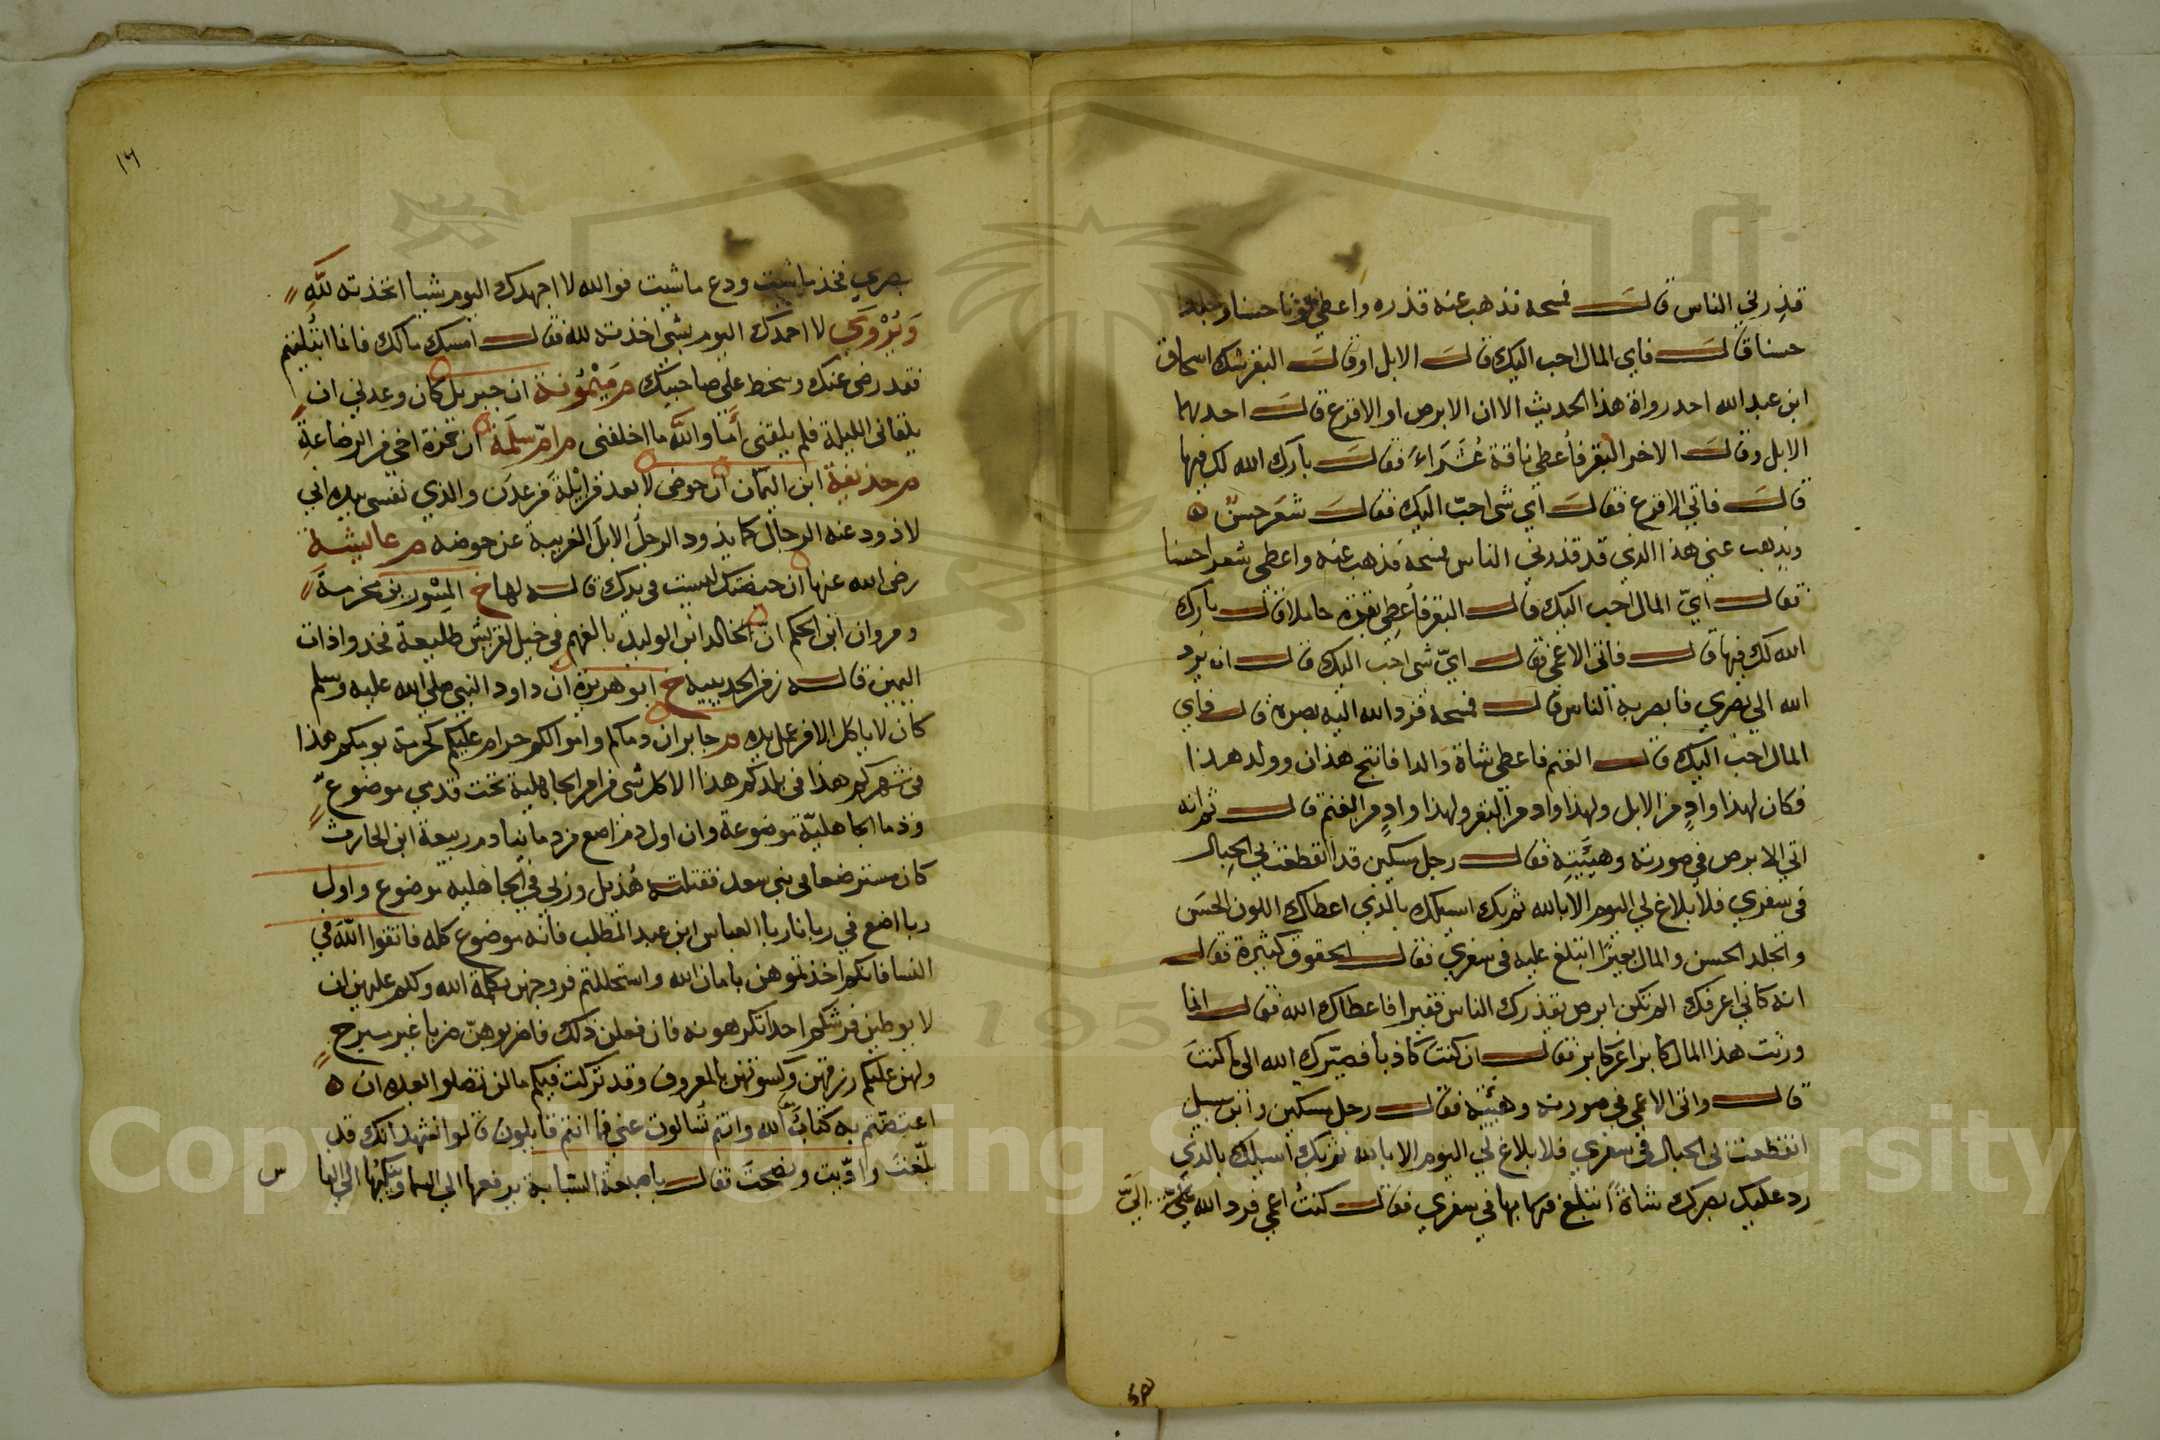 قذرني الناس قال فمسحه فذهب عنه قذره واعطي لونا حسنا وجلدا
حسنا قال فاي المال احب اليك قال الابل او قال البقر شك اسحاق
ابن عبد الله احد رواة هذا الحديث الا ان الابرص او الاقرع قال احدهما
الابل وقال الاخر البقر فأعطي ناقة عُشَرَاءَ فقال بارك الله لك فيها
قال فاتي الاقرع فقال اي شي احبّ اليك فقال شعر حسن ه
ويذهب عني هذا الذي قد قذرني الناس فمسحه فذهب عنه واعطي شعرا حسنا
فقال ايّ المال احب اليك قال البقر فأعطي بقرة حاملا قال بارك
الله لك فيها قال فاتي الاعمى فقال ايّ شي احب اليك قال ان يرد
الله الي بصري فابصر به الناس قال فمسحه فرد الله اليه بصره قال فاي
المال احب اليك قال الغنم فاعطي شاة والدا فانتج هذان وولد هذا
فكان لهذا وادٍ من الابل ولهذا واد من البقر ولهذا وادٍ من الغنم قال ثم انه
اتي الابرص في صورته وهيئته فقال رجل مسكين قد انقطعت بي الحبال
في سفري فلا بلاغ لي اليوم الا بالله ثم بك اسيلك بالذي اعطاك اللون الحسن
والجلد الحسن والمال بعيرًا اتبلغ عليه في سفري فقال الحقوق كثيرة فقال
انه كاني اعرفك الم تكن ابرص يقذرك الناس فقيرا فاعطاك الله فقال انما
ورثت هذا المال كابرا عن كابر فقال ان كنت كاذبا فصيّرك الله الى ما كنت
قال واتى الاعمي في صورته وهيئته فقال رجل مسكين وابن سبيل
انقطعت بي الحبال في سفري فلا بلاغ لي اليوم الا بالله ثم بك اسيلك بالذي
رد عليك بصرك شاةً اتبلغ بها في سفري فقال كنتُ اعمى فرد الله عليّ اليّ
١٦
بصري فخذ ما شيت ودع ما شيت فوالله لا اجهدك اليوم شيا اخذته للّه
وَيُرْوَي لا احمدك اليوم بشي اخذته لله فقال امسك مالك فانما ابتُليتم
فقد رضي عنك وسخط على صاحبيك م مَيْمُونة ان جبريل كان وعدني ان
يلقاني الليلة فلم يلقني أَمَا واللّه ما اخلفني م ام سلمة ان حمزة اخي من الرضاعةِ
م حذيفة ابن اليمان ان حوضي لابعد من ايْلةَ من عَدَن والذي نفسي بيده اني
لاذود عنه الرجال كما يذود الرجل الابل الغريبة عن حوضه م عايشة
رضي الله عنها ان حيضتك ليست في يدك قاله لها خ المِسْور بن مخرمة
ومروان ابن الحكم ان خالد ابن الوليد بالغميم في خيل لقريش طليعة فخذوا ذات
اليمين قاله زمن الحديبية خ ابو هريرة ان داود النبي صلي الله عليه وسلم
كان لا ياكل الا من عمل يده م جابر ان دماكم واموالكم حرام عليكم كحرمة يومكم هذا
في شهركم هذا في بلدكم هذا الا كل شي من امر الجاهلية تحت قدمي موضوع
ودما الجاهليّة موضوعة وان اول دم اضع من دماينا دم ربيعة ابن الحارث
كان مسترضعا في بني سعد فقتلته هُذيل وربا الجاهلية موضوع واول
ربا اضع في ربانا ربا العباس ابن عبد المطلب فانه موضوع كله فاتقوا اللّه في
النسا فانكم اخذتموهن بامان الله واستحللتم فروجهن بكلمة الله ولكم عليهن ان
لا يوطين فرشكم احدا تكرهونه فان فعلن ذلك فاضربوهنّ ضربا غير مبرح
ولهن عليكم رزقهن وكسوتهن بالمعروف وقد تركت فيكم ما لن تضلوا بعده ان ه
اعتصمتم به كتابَ اللّه وانتم تُسالون عني فما انتم قايلون قالوا نشهد انك قد
بلّغتَ وادّيت ونصحتَ فقال باصبعه السّبّابة يرفعها الي السما وينكتها الي
Copyright © King Saud University
195